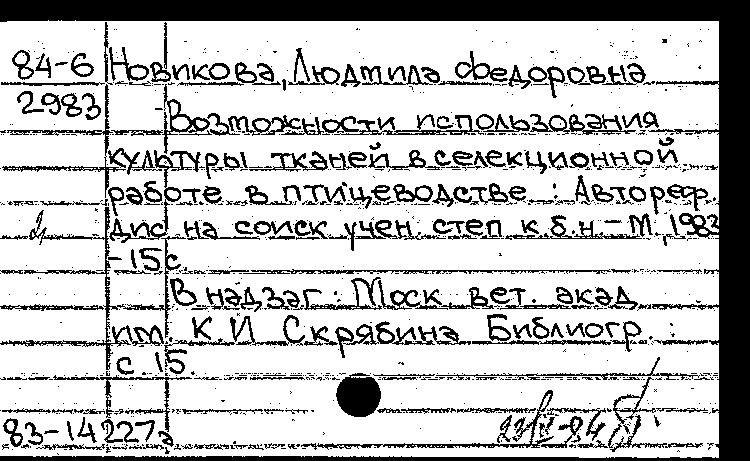 84-6 Новикова, Людмила Федоровна
2983 Возможности использования
культуры тканей в селекционной
работе в птицеводстве : Автореф.
дис на соиск учен. степ к.б.н - М, 1983
-15 с.
В надзаг : Моск вет. акад
им. К.И Скрябина Библиогр. :
с. 15
83-14227э